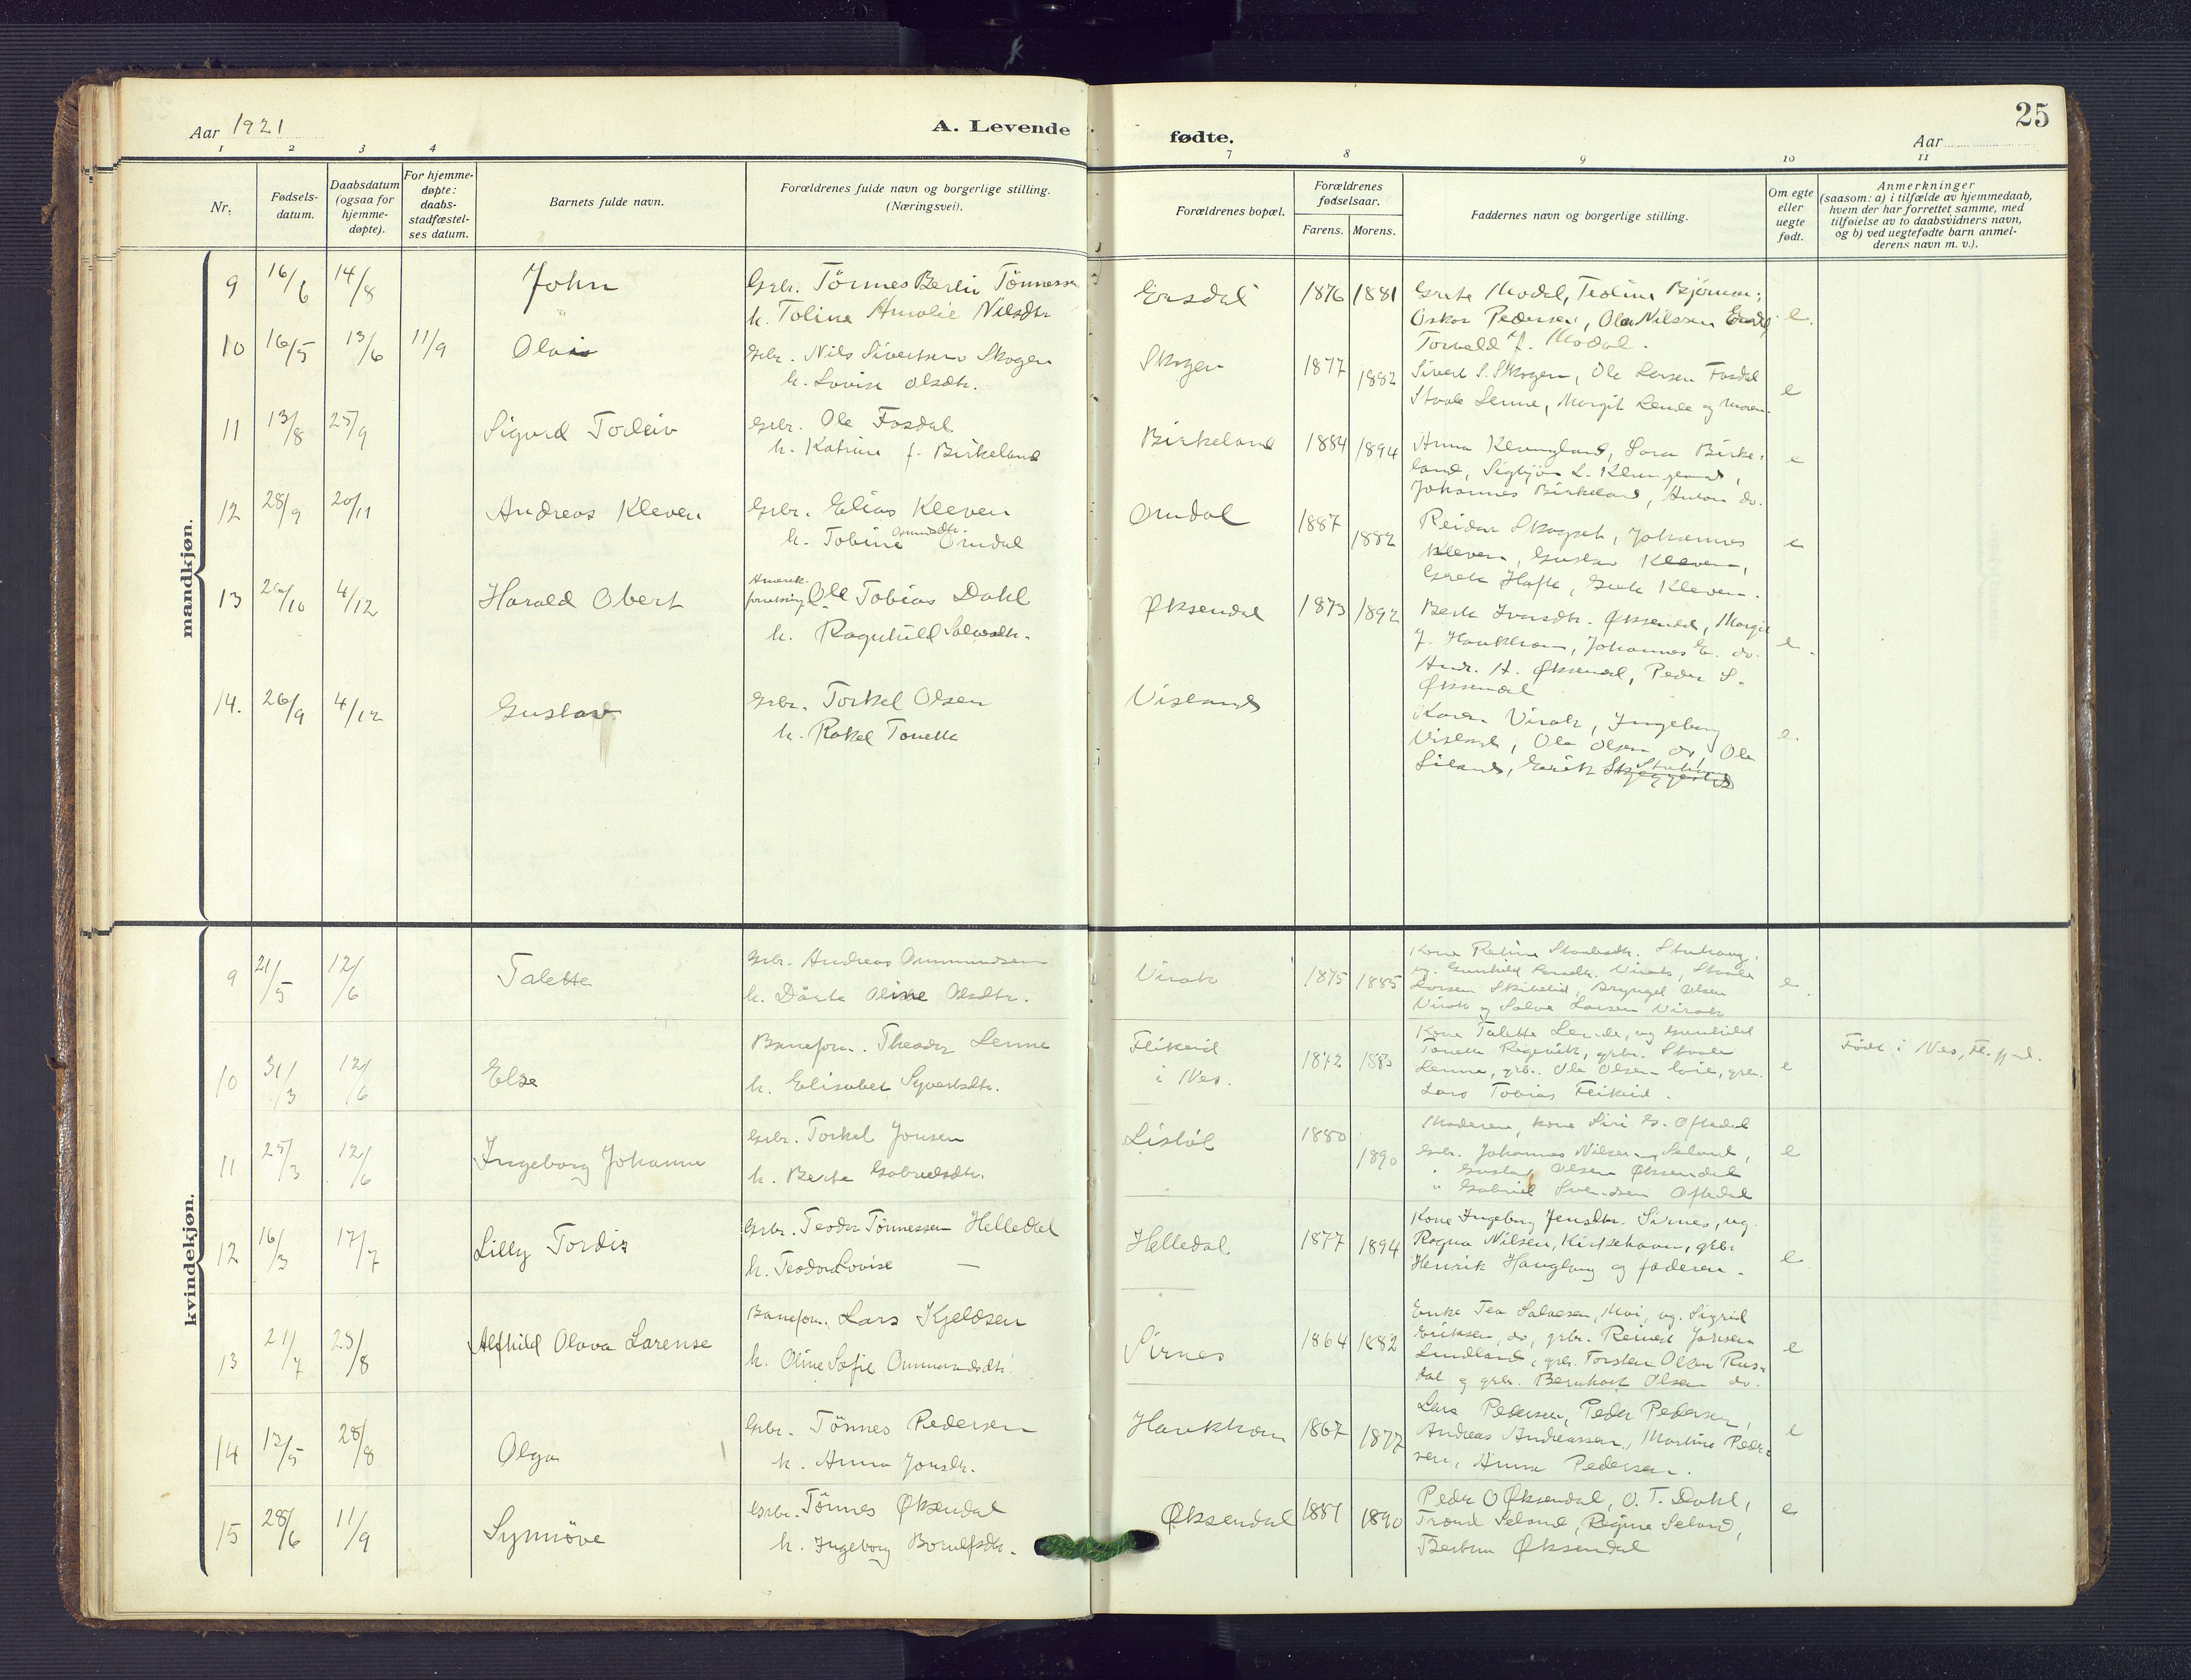 Aar 1921
A. Levende
fødte.
Aar
25
1 2 3 4 7 8 9 10 11
Nr.
Fødsels-
datum.
Daabsdatum
(ogsaa for
hjemme-
døpte).
For hjemme-
døpte:
daabs-
stadfæstel-
ses datum.
Barnets fulde navn.
Forældrenes fulde navn og borgerlige stilling.
(Næringsvei).
Forældrenes bopæl.
Forældrenes
fødselsaar.
Farens. Morens.
Faddernes navn og borgerlige stilling.
Om egte
eller
uegte
født.
Anmerkninger
(saasom: a) i tilfælde av hjemmedaab,
hvem der har forrettet samme, med
tilføielse av to daabsvidners navn,
og b) ved uegtefødte barn anmel-
derens navn m. v.).
mandkjøn.
9 16/6 14/8 John
Grbr. Tönnes Berlin Tönnessen
h. Toline Amalie Nilsdtr
Ersdal 1876 1881
Grete Modal, Teoline Bjørnson;
Oskar Pedersen, Ole Nilssen Ersdal
Torvald J. Modal.
e.
10 16/5 13/6 11/9 Olai
Grbr. Nils Sivertsen Skogen
h. Lovise Olsdtr.
Skogen 1877 1882
Sivert S. Skogen, Ole Larsen Fosdal
Staale Lenne, Margit Lende og moren.
e
11 13/8 25/9 Sigurd Torleiv
Grbr. Ole Fosdal
h. Katrine f. Birkeland
Birkeland 1884 1894
Anna Klungland, Sara Birke-
land, Sigbjörn L. Klungland,
Johannes Birkeland, Anton do.
e
12 28/9 20/11 Andreas Kleven
Grbr. Elias Kleven
h. Tobine Omundsdtr. Omdal
Omdal 1887 1882
Reidar Skogset, Johannes
Kleven, Gustav Kleven,
Grete Hafte, Grete Kleven.
e
13 26/10 4/12 Harald Obert
Ole Tobias Dahl
h. Ragnhild Salvesdtr.
Øksendal 1873 1892
Berte Ivarsdtr. Øksendal, Margit
J. Haukhom, Johannes E. do.
Andr. H. Øksendal, Peder S.
Øksendal
e.
14. 26/9 4/12 Gustav
Grbr. Torkel Olsen
h. Rakel Tonette
Visland
Karen Virak, Ingeborg
Visland, Ole Olsen do, Ole
Liland, Eirik Skjeggestad
e.
kvindekjøn.
9 21/5 12/6 Talette
Grbr. Andreas Ommundsen
h. Dårte Oline Olsdtr.
Virak 1875 1885
Kone Ratine Staalesdtr. Stuhaug,
ug. Gunhild Larsdtr. Virak, Staale
Larsen Skibelid, Bryngel Olsen
Virak og Salve Larsen Virak
e.
10 31/3 12/6 Else
Baneform. Theodor Lenne
h. Elisabet Syvertsdtr.
Fleikeid
i Nes.
1872 1883
Kone Talette Lende, ug Gunhild
Tonette Regevik, grbr. Staale
Lenne, grbr. Ole Olsen Loie, grbr.
Lars Tobias Fleikeid.
e
Født i Nes, Fl.fjord.
11 25/3 12/6 Ingeborg Johanne
Grbr. Torkel Jonsen
h. Berte Gabrielsdtr.
Lislöl 1880 1890
Moderen, kone Siri G. Oftedal
Grbr. Johannes Nilsen Seland,
" Gustav Olsen Øksendal
" Gabriel Svendsen Oftedal
e
12 16/3 17/7 Lilly Tordis
Grbr. Teodor Tönnessen Helledal
h. Teodora Lovise —
Helledal 1877 1894
Kone Ingeborg Jensdtr. Sirnes, ug.
Ragna Nilsen, Kirkehavn, grbr
Henrik Haugland og faderen.
e
13 21/7 25/8 Alfhild Olava Larense
Baneform. Lars Kjeldsen
h. Oline Sofie Ommundsdtr.
Sirnes 1864 1882
Enke Tea Salvesen, Moi, ug. Sigrid
Eriksen, do, grbr. Reinert Jonsen
Lindland, grbr. Torsten Olsen Rus-
dal og grbr. Bernhart Olsen do.
e
14 12/5 28/8 Olga
Grbr. Tönnes Pedersen
h. Anna Jonsdtr.
Haukhom 1867 1877
Lars Pedersen, Peder Pedersen,
Andreas Andreassen, Martine Peder-
sen, Anna Pedersen.
e
15 28/6 11/9 Synnöve
Grbr. Tönnes Øksendal
h. Ingeborg Borulfsdtr.
Øksendal 1881 1890
Peder O Øksendal, O. T. Dahl,
Trond Seland, Regine Seland,
Bertine Øksendal
e